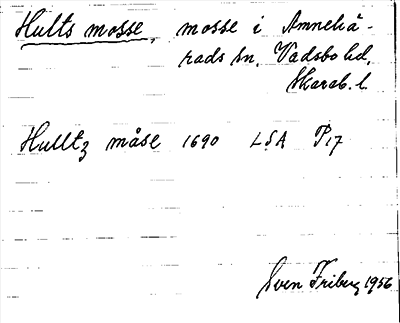 Hults mosse, mosse i Amnehä-
rads sn, Vadsbo hd,
Skarab. l.
Hulltz måse 1690 LSA P17
Sven Friberg 1956